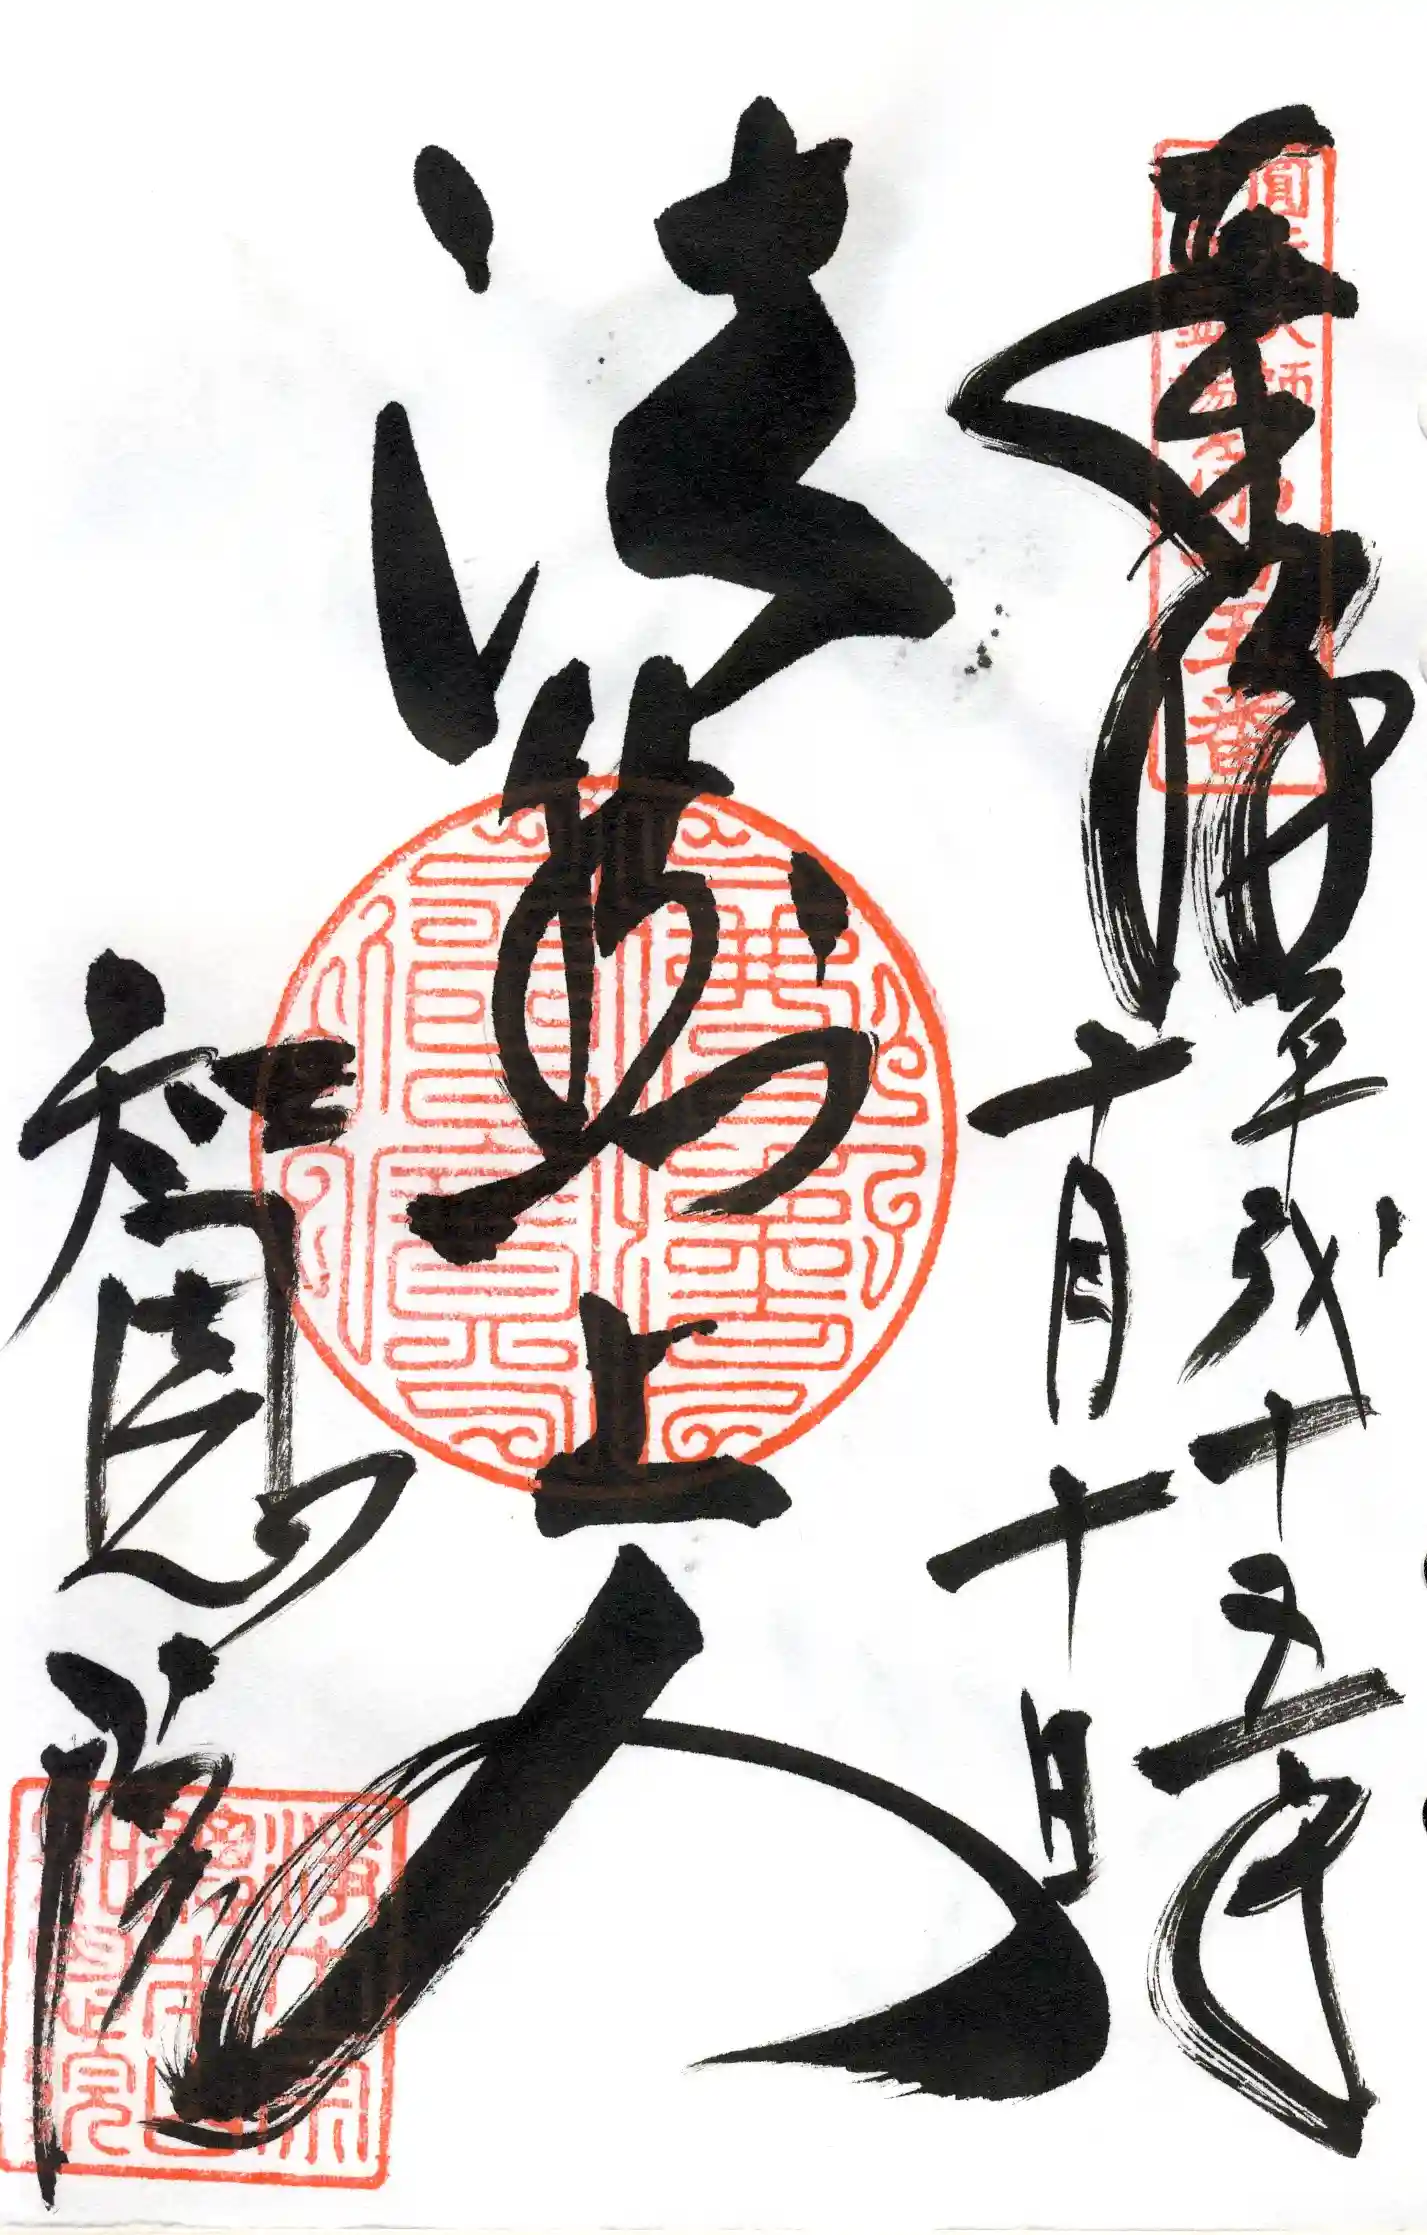 圓光大師
霊場第廿五番
奉拝
平成十五年
十月十日
法然上人
知恩院
浄土宗
總本山
知恩院